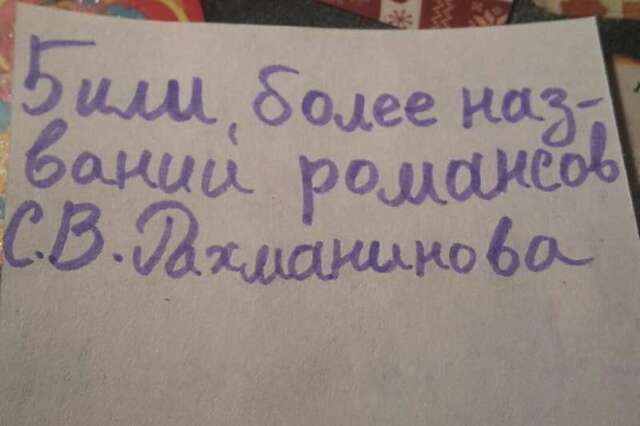 5 или, более наз-
ваний романсов
С.В. Рахманинова